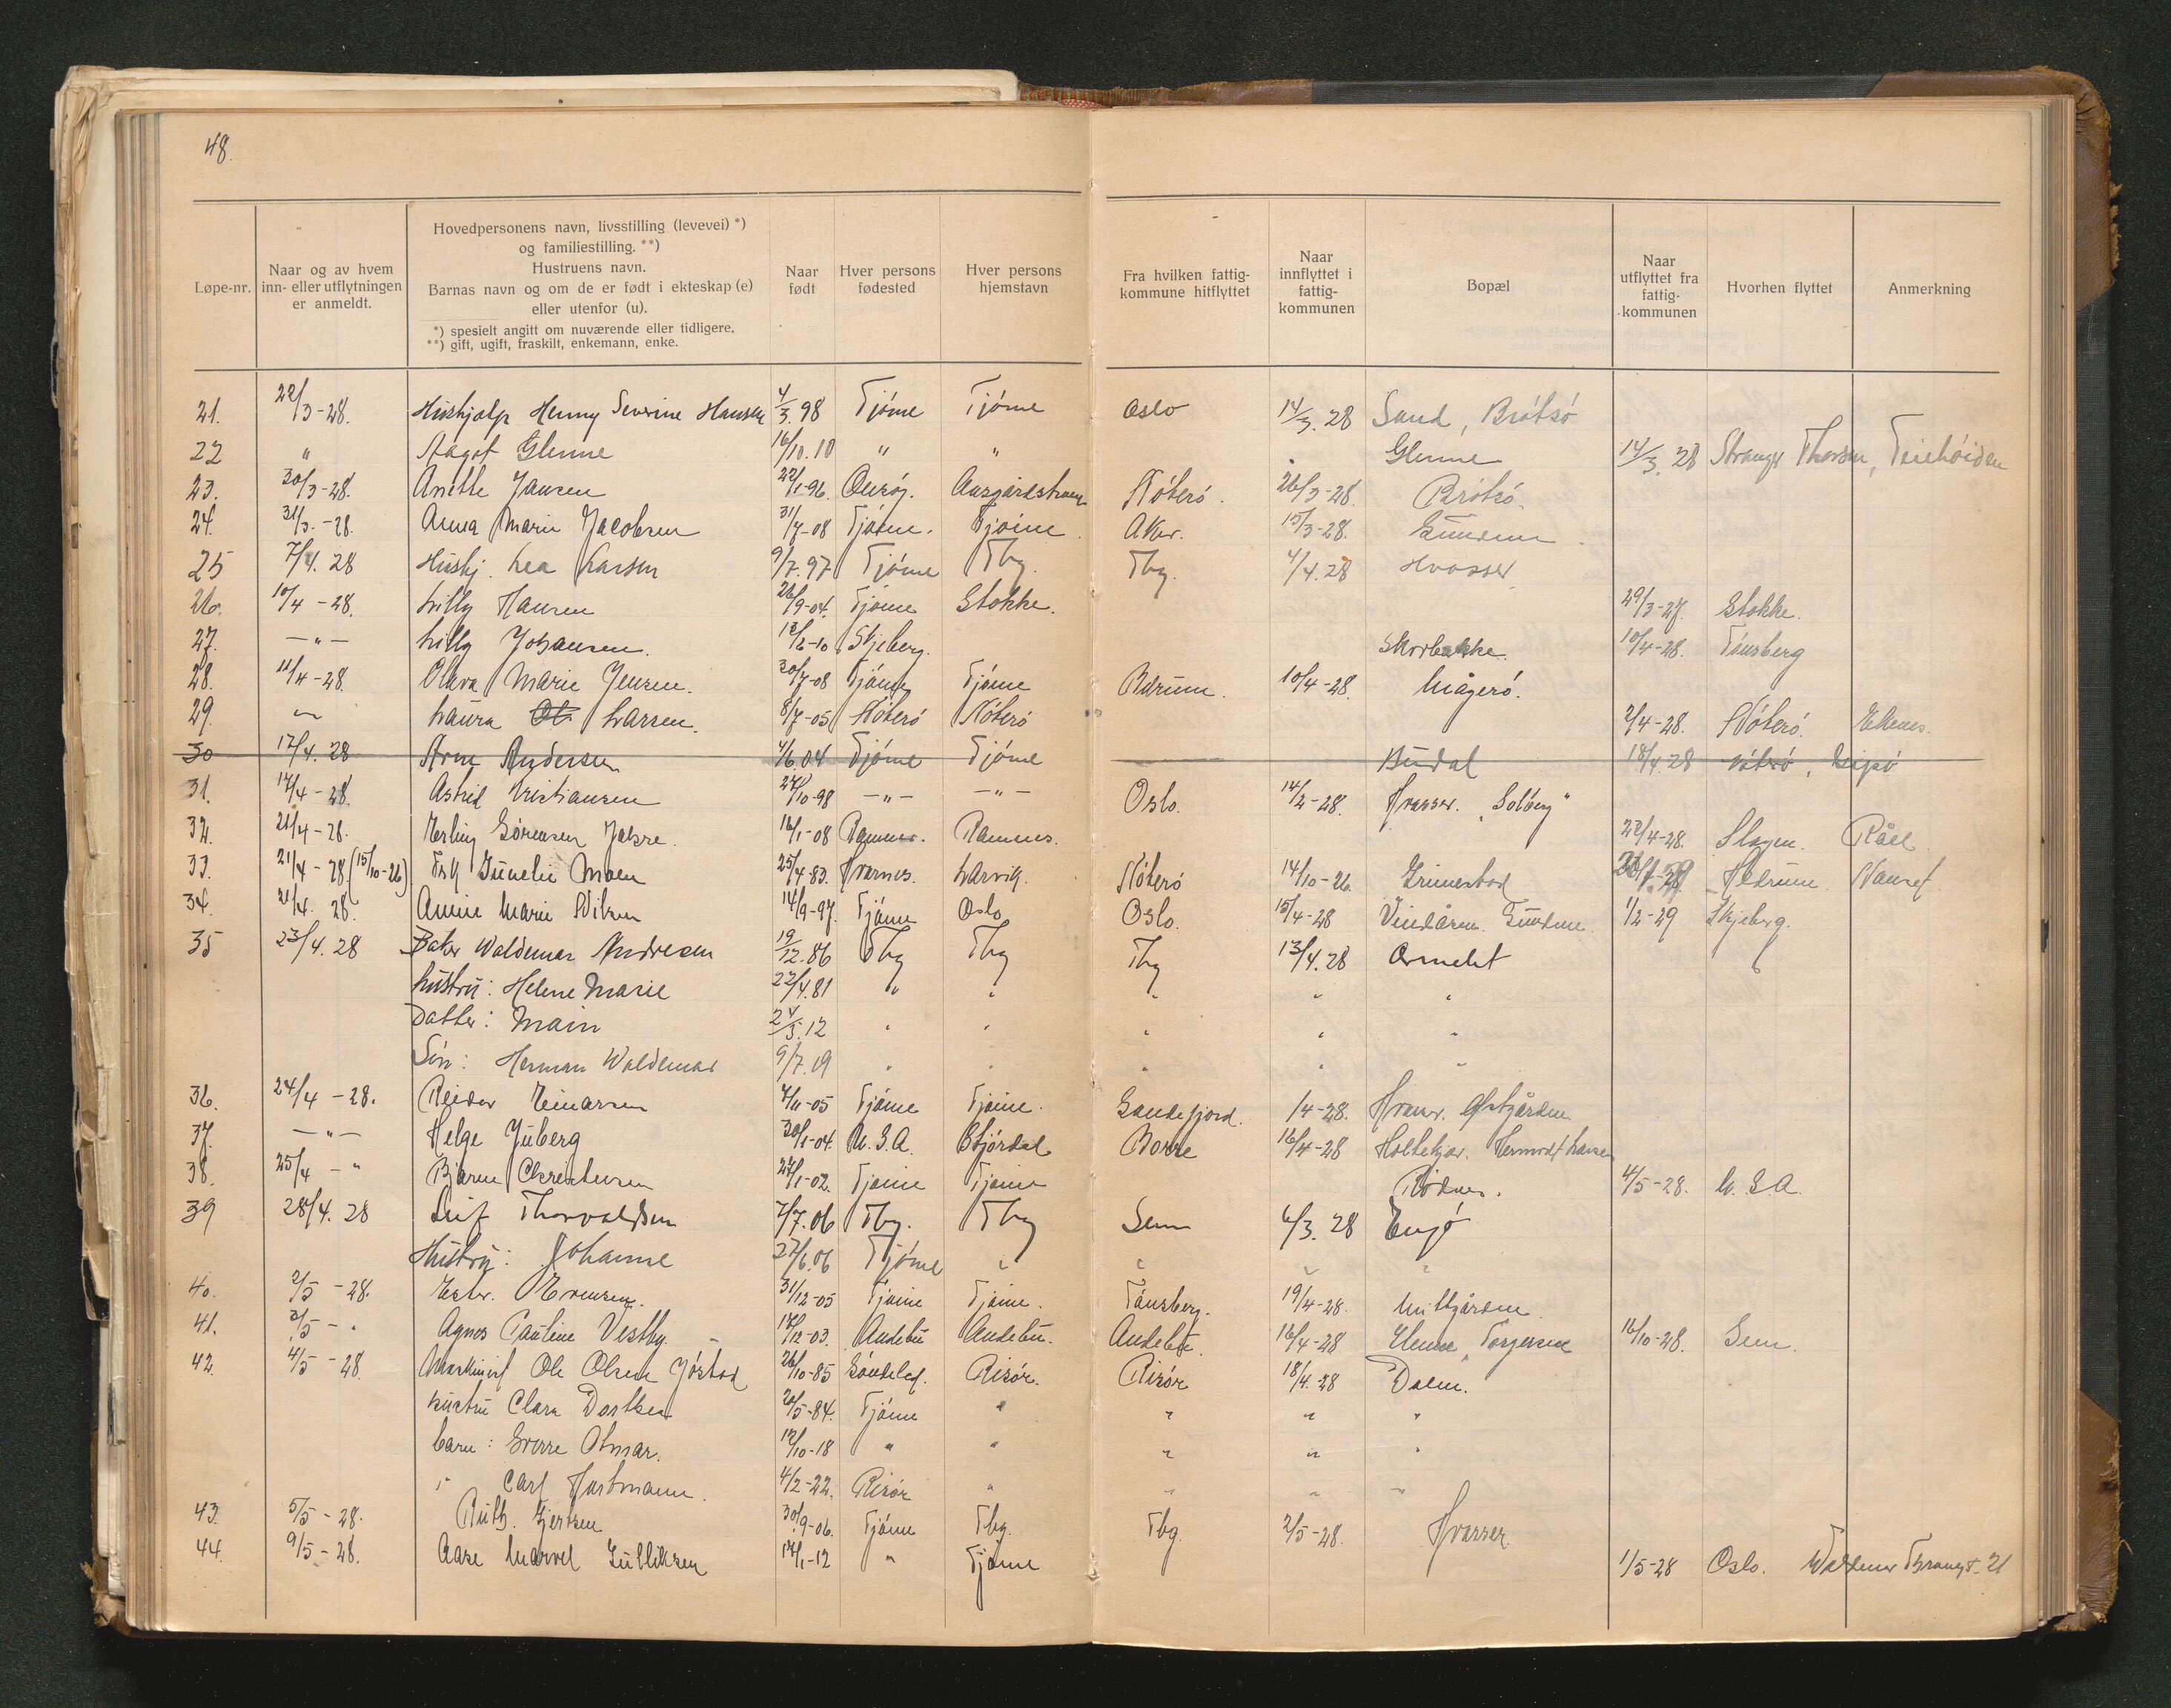 48.
Løpe-nr.
Naar og av hvem inn- eller utflytningen er anmeldt.
Hovedpersonens navn, livsstilling (levevei) *) og familiestilling. **)
Hustruens navn.
Barnas navn og om de er født i ekteskap (e) eller utenfor (u).
*) spesielt angitt om nuværende eller tidligere.
**) gift, ugift, fraskilt, enkemann, enke.
Naar født
Hver persons fødested
Hver persons hjemstavn
Fra hvilken fattigkommune hitflyttet
Naar innflyttet i fattigkommunen
Bopæl
Naar utflyttet fra fattigkommunen
Hvorhen flyttet
Anmerkning
21. 22/3-28. Hushjælp Henny Severine Hansen 4/3.98 Tjöme Tjöme Oslo 14/3.28 Sand, Brötsö
22 " Aagot Glenne 16/10.10 " " Glenne 14/3.28 Thorsen, Teiehöiden
23. 30/3-28. Anette Jansen 22/1-96. Aasgårdstrand Nöterö. 26/3-28. Brötsö.
24. 31/3.-28. Anna Marie Jacobsen 31/7-08 Tjöme. Tjöme. Aker. 15/3-28.
25 7/4.28 Hushj. Lea Larsen 9/7.97 Tjöme Tbg. Tbg. 4/4.28 Hvasser
26. 10/4-28. Lilly Hansen 26/9-04. Tjöme Stokke. 29/3-27. Stokke.
27. -"- Lilly Johansen. Skjeberg. Skorbakke. 10/4-28. Tönsberg
28. 11/4-28. Olava Marie Jensen. 30/7-08 Tjöme Tjöme Bærum. 10/4-28. Mågerö.
29. Laura Larsen. 8/7-05 Nöterö Nöterö 2/4-28. Nöterö. Ekenes.
30 17/4.28 Arne Andersen Tjöme Tjöme Bundal 18/4.28 Nöterö,
31. 14/4-28. Astrid Kristiansen 27/10-98 -"- -"- Oslo. 14/2-28. Hvasser. "Solberg"
32. 21/4-28. Erling Sörensen 16/1-08 Ramnes. Ramnes. 22/4-28. Slagen. Råel
33. 21/4-28. (15/10-26) Frk Gunelie Moen 25/4-83. Hvarnes. Larvik. Nöterö 14/10-26. Grimestad Hedrum. Nanset.
34. 21/4. 28. Marie Nilsen 14/9-97. Tjöme Oslo. Oslo. 15/4-28 1/2-29 Skjeberg.
35 23/4.28 Baker Waldemar Andresen 19/12.86 Tbg Tbg Tbg 13/4.28 Ormelet
Hustru: Helene Marie 22/4.81 " " " " "
Datter: Main 24/5.12 " " " " "
Sön: Herman Waldemar 9/7.19 " " " " "
36. 24/4-28. Reidar Einarsen 7/11-05 Tjöme Tjöme. Sandefjord. /4-28. Hvasser. Östgården
37. -"- Helge Juberg 30/1-04. U.S.A. Stjördal Borre 16/4-28
38. 25/4-" Bjarne Christensen 27/1-02. Tjöme Tjöme Rödsen. 4/5-28. U.S.A.
39 28/4.28 Leif Thorvaldsen 7/7.06 Tbg. Tbg Sem 6/3.28 Engö
Hustru: Johanne 27/6.06 Tjöme " " " "
40. 2/5-28. Ester. 31/12-05 Tjöme Tjöme. Tönsberg. 19/4-28. Mittgården
41. 3/5-" Agnes Pauline Vestby. 17/12-03. Andebu Andebu. Andebu. 16/4-28 Glenne, Torjersen 16/10-28. Sem.
42. 4/5-28. Maskinist Ole Olsen Jöstad 26/10-85 Söndeled. Risör. Risör 18/4.-28 Dalen.
Hustru Clara Dorthea 20/5-84. Tjöme " " " "
barn: Sverre Otmar. 12/10-18 " " " " "
" Carl Hartmann. 4/2-22. Risör " " " "
43. 5/5-28. Ruth. Gjertsen 30/9-06. Tjöme Tbg. Tbg. 2/5-28. Hvasser.
44. 9/5-28. Aase Marvel Gulliksen 17/1-12 " Tjöme 1/5-28 Oslo. Waldemar Thranegt. 21